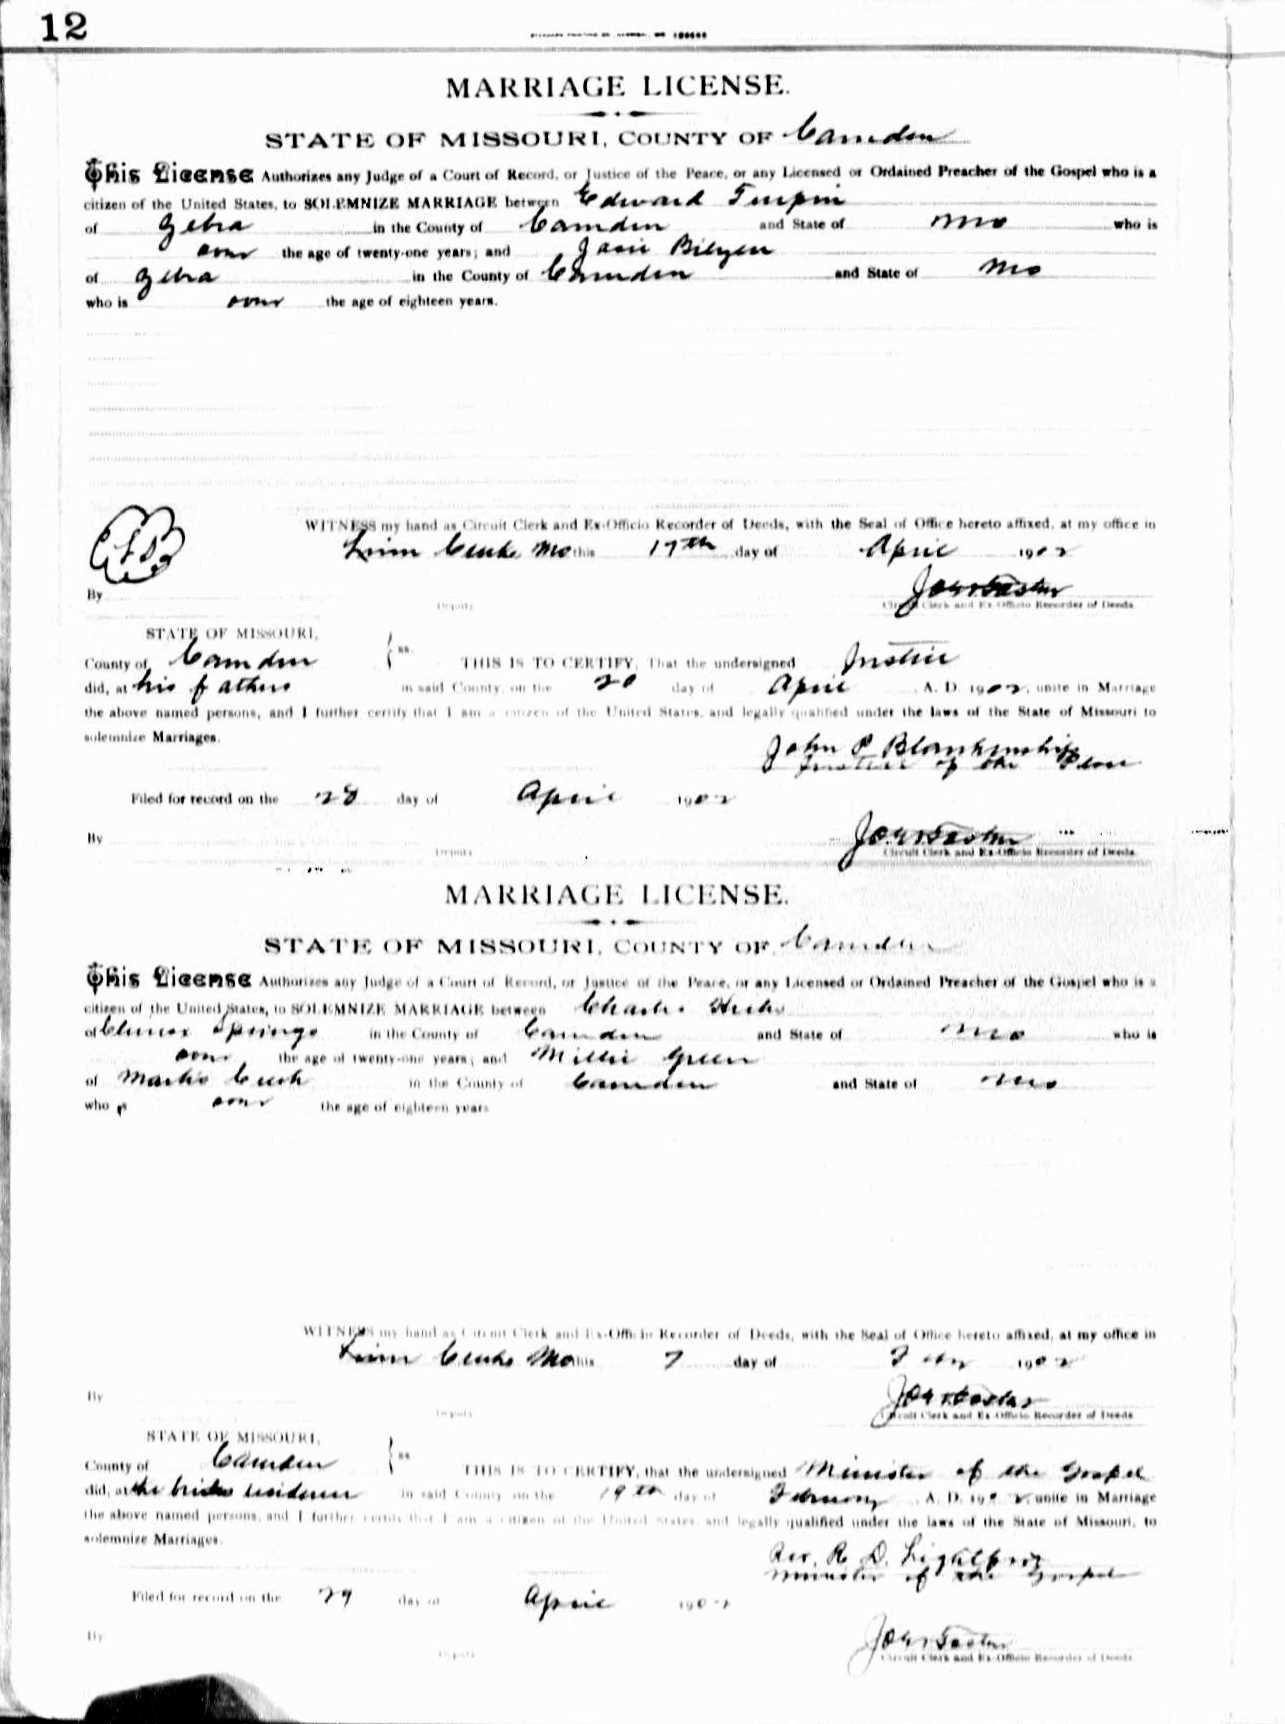 12
MARRIAGE LICENSE.
STATE OF MISSOURI, COUNTY OF Camden
This License Authorizes any Judge of a Court of Record, or Justice of the Peace, or any Licensed or Ordained Preacher of the Gospel who is a
citizen of the United States, to SOLEMNIZE MARRIAGE between Edward Turpin
of Zebra in the County of Camden and State of Mo who is
over the age of twenty-one years; and Janie Bilyeu
of Zebra in the County of Camden and State of Mo
who is over the age of eighteen years.
WITNESS my hand as Circuit Clerk and Ex-Officio Recorder of Deeds, with the Seal of Office hereto affixed, at my office in
Linn Creek Mo this 17th day of April 1902
By
Deputy
Circuit Clerk and Ex-Officio Recorder of Deeds
STATE OF MISSOURI,
County of Camden ss. THIS IS TO CERTIFY, That the undersigned Justice
did, at his fathers in said County, on the 20 day of April A. D. 1902, unite in Marriage
the above named persons, and I further certify that I am a citizen of the United States, and legally qualified under the laws of the State of Missouri to
solemnize Marriages.
John P Blankenship
Justice of the Peace
Filed for record on the 28 day of April 1902
By
Deputy
Circuit Clerk and Ex-Officio Recorder of Deeds
MARRIAGE LICENSE.
STATE OF MISSOURI, COUNTY OF Camden
This License Authorizes any Judge of a Court of Record, or Justice of the Peace, or any Licensed or Ordained Preacher of the Gospel who is a
citizen of the United States, to SOLEMNIZE MARRIAGE between Charles Hicks
of Climax Springs in the County of Camden and State of Mo who is
over the age of twenty-one years; and Millie Green
of Marks Creek in the County of Camden and State of Mo
who is over the age of eighteen years
WITNESS my hand as Circuit Clerk and Ex-Officio Recorder of Deeds, with the Seal of Office hereto affixed, at my office in
Linn Creek Mo this 7 day of Feby 1902
By
Deputy
Circuit Clerk and Ex-Officio Recorder of Deeds
STATE OF MISSOURI,
County of Camden ss THIS IS TO CERTIFY, that the undersigned Minister of the Gospel
did, at the brides residence in said County on the 19th day of February A. D. 1902, unite in Marriage
the above named persons, and I further certify that I am a citizen of the United States, and legally qualified under the laws of the State of Missouri, to
solemnize Marriages.
Rev. R. D. Lightfoot
Minister of the Gospel
Filed for record on the 29 day of April 1902
By
Deputy
Circuit Clerk and Ex-Officio Recorder of Deeds